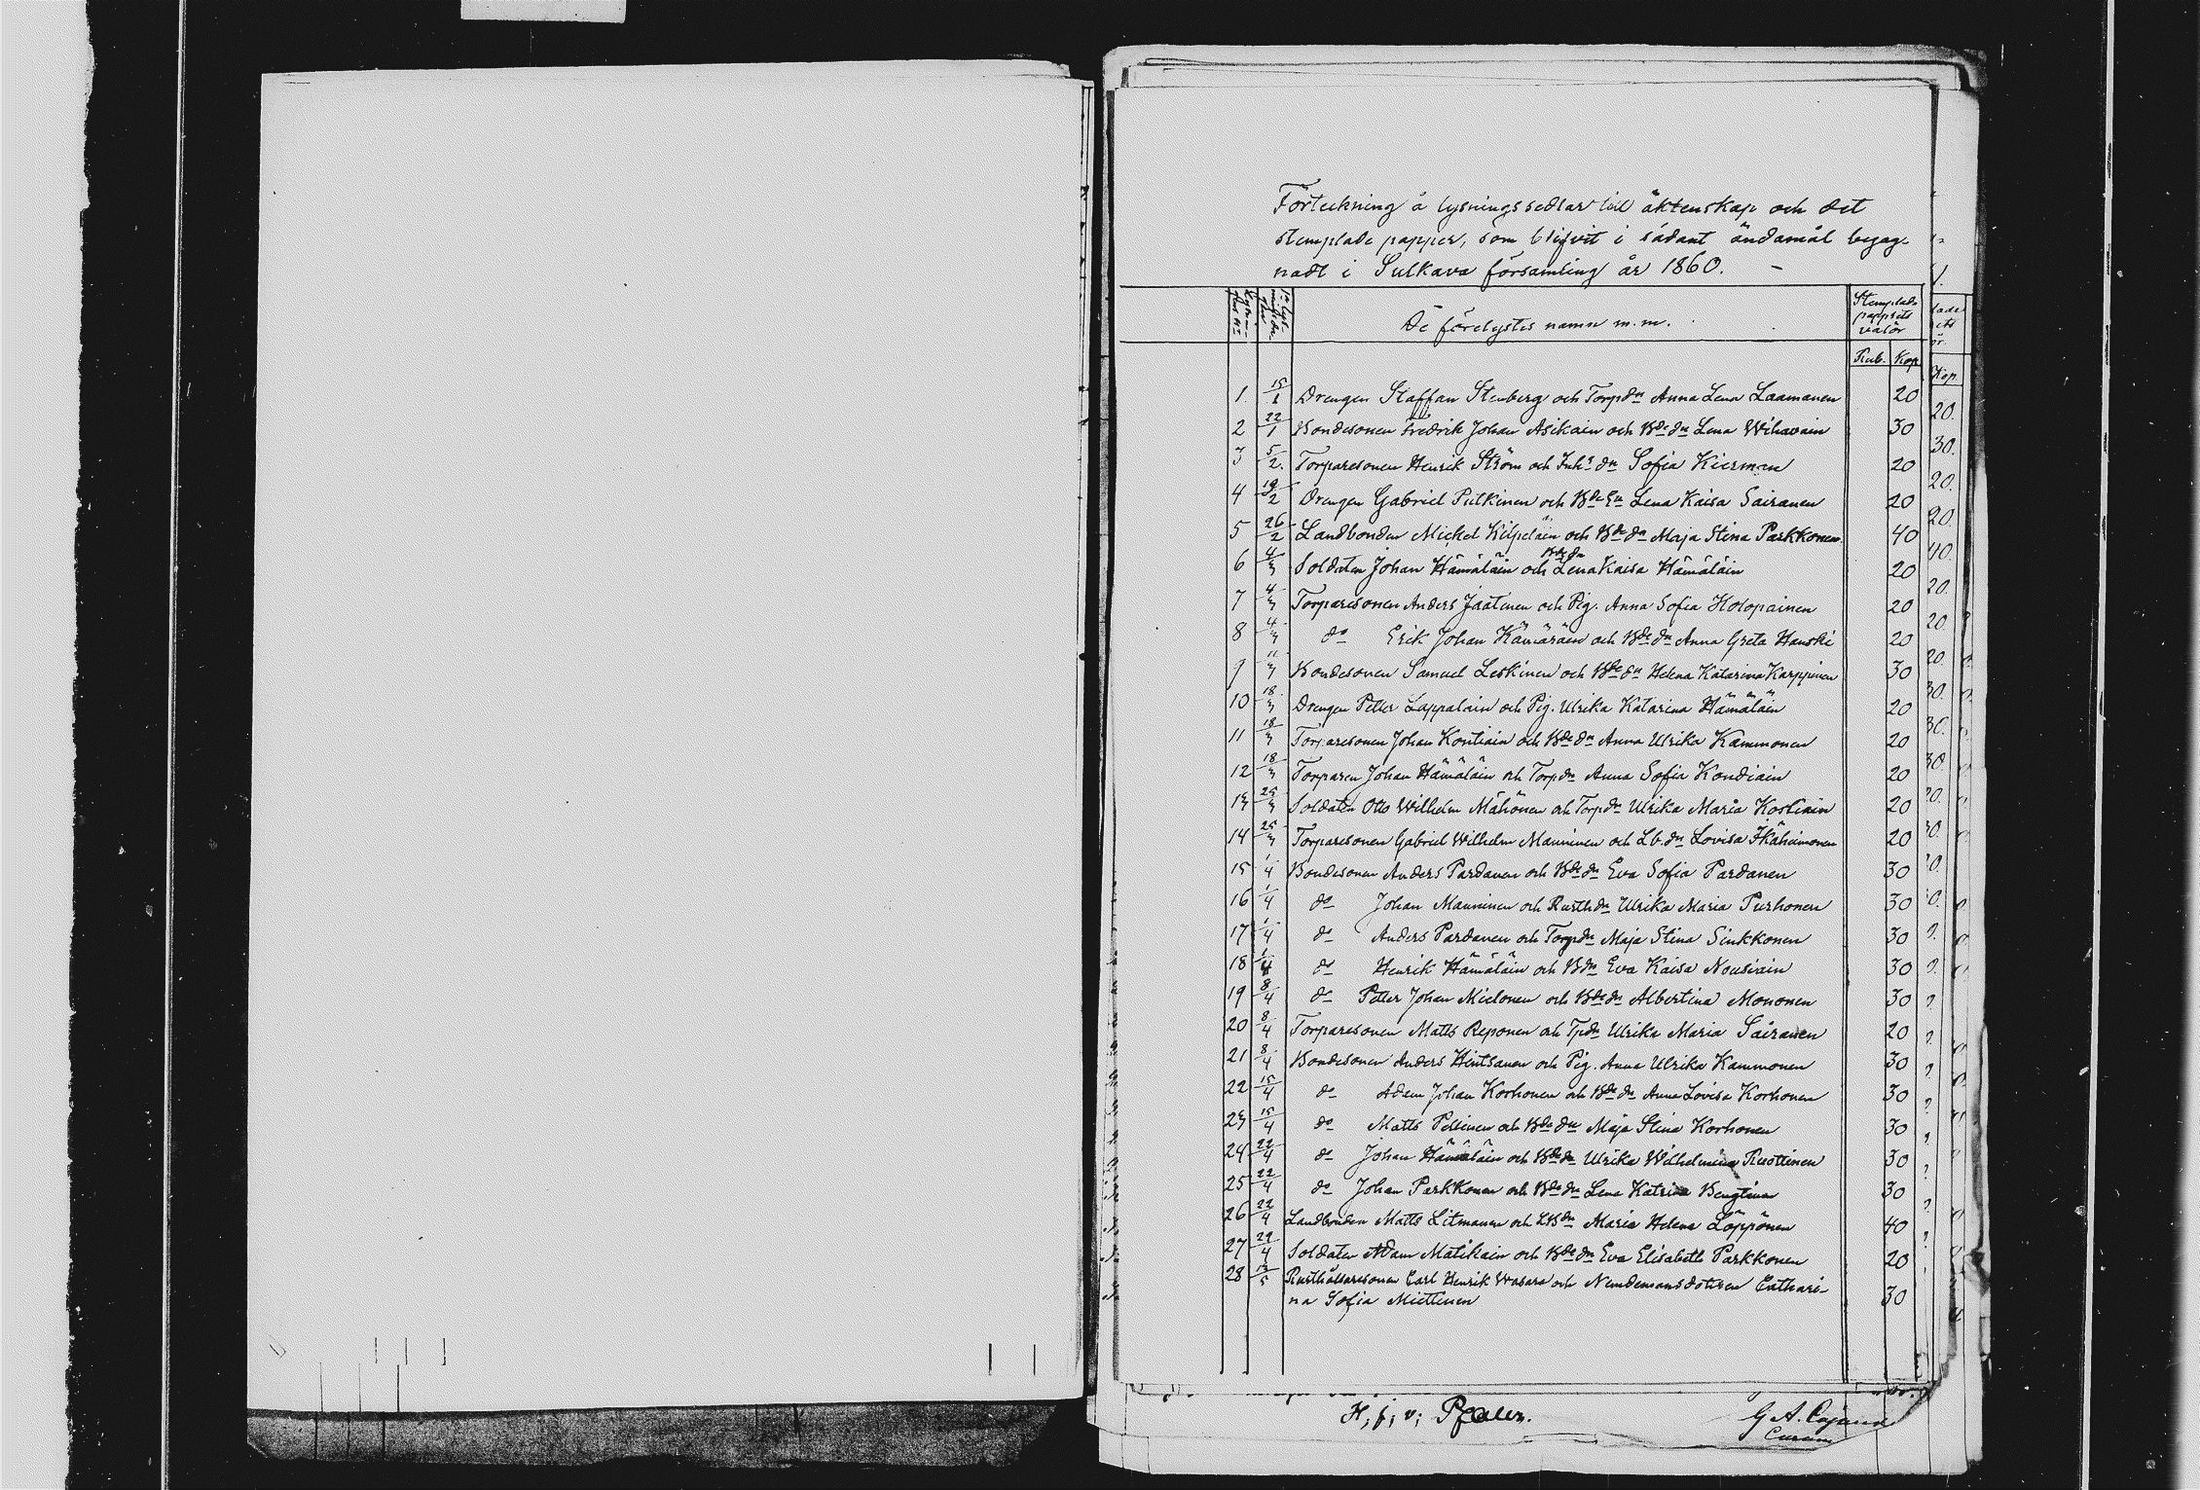 Förteckning å lysningssedlar till äktenskap och det
stemplade papper, som blifvit i sådant ändamål begag-
nadt i Sulkava församling år 1860. –
De förelystes namn m.m.
Stemplade
papprets
valör
Rub. Kop
1 15/1 Drengen Staffan Stenberg och Torpdn Anna Lena Laamanen 20
2 22/1 Bondesonen Fredrik Johan Asikain och Bdedn Lena Wihavain 30
3 5/2 Torparesonen Henrik Ström och Inhs dn Sofia Kierman 20
4 19/2 Drengen Gabriel Putkinen och Bdedn Lena Kaisa Sairanen 20
5 26/2 Landbonden Mickel Kilpeläin och Bdedn Maja Stina Parkkonen 40
6 4/3 Soldaten Johan Hämäläin och Bdedn Lena Kaisa Hämäläin 20
7 4/3 Torparesonen Anders Jäätinen och Pig. Anna Sofia Holopainen 20
8 4/3 do Erik Johan Kämäräin och Bdedn Anna Greta Hauski 20
9 11/3 Bondesonen Samuel Leskinen och Bdedn Helena Katarina Karppinen 30
10 18/3 Drengen Petter Lappalain och Pig. Ulrika Katarina Hämäläin 20
11 18/3 Torparesonen Johan Kontiain och Bdedn Anna Ulrika Kammonen 20
12 18/3 Torparen Johan Hämäläin och Torpdn Anna Sofia Kondiain 20
13 25/3 Soldaten Otto Wilhelm Mähönen och Torpdn Ulrika Maria Kostiain 20
14 25/3 Torparesonen Gabriel Wilhelm Manninen och Lb.dn Lovisa Ikäheimonen 20
15 1/4 Bondesonen Anders Pardanen och Bdedn Eva Sofia Pardanen 30
16 1/4 do Johan Manninen och Rusthdn Ulrika Maria Purhonen 30
17 1/4 do Anders Pardanen och Torpdn Maja Stina Sinkkonen 30
18 1/4 do Henrik Hämäläin och Bdn Eva Kaisa Nousiain 30
19 8/4 do Petter Johan Mielonen och Bdedn Albertina Mononen 30
20 8/4 Torparesonen Matts Reponen och Tpdn Ulrika Maria Sairanen 20
21 8/4 Bondesonen Anders Hintsanen och Pig. Anna Ulrika Kammonen 30
22 15/4 do Adam Johan Korhonen och Bdedn Anna Lovisa Korhonen 30
23 15/4 do Matts Pellinen och Bdedn Maja Stina Korhonen 30
24 22/4 do Johan Hämäläin och Bdedn Ulrika Wilhelmina Ruottinen 30
25 22/4 do Johan Parkkonen och Bdedn Lena Katrina Bengtinen 30
26 22/4 Landbonden Matts Litmanen och LBdn Maria Helena Löppönen 40
27 29/4 Soldaten Adam Matikain och Bdedn Eva Elisabeth Parkkonen 20
28 13/5 Rusthållaresonen Carl Henrik Wasara och Nemdemansdotren Cathari-
na Sofia Miettinen 30
H; f; v; Pfaler.
G A. Cajana